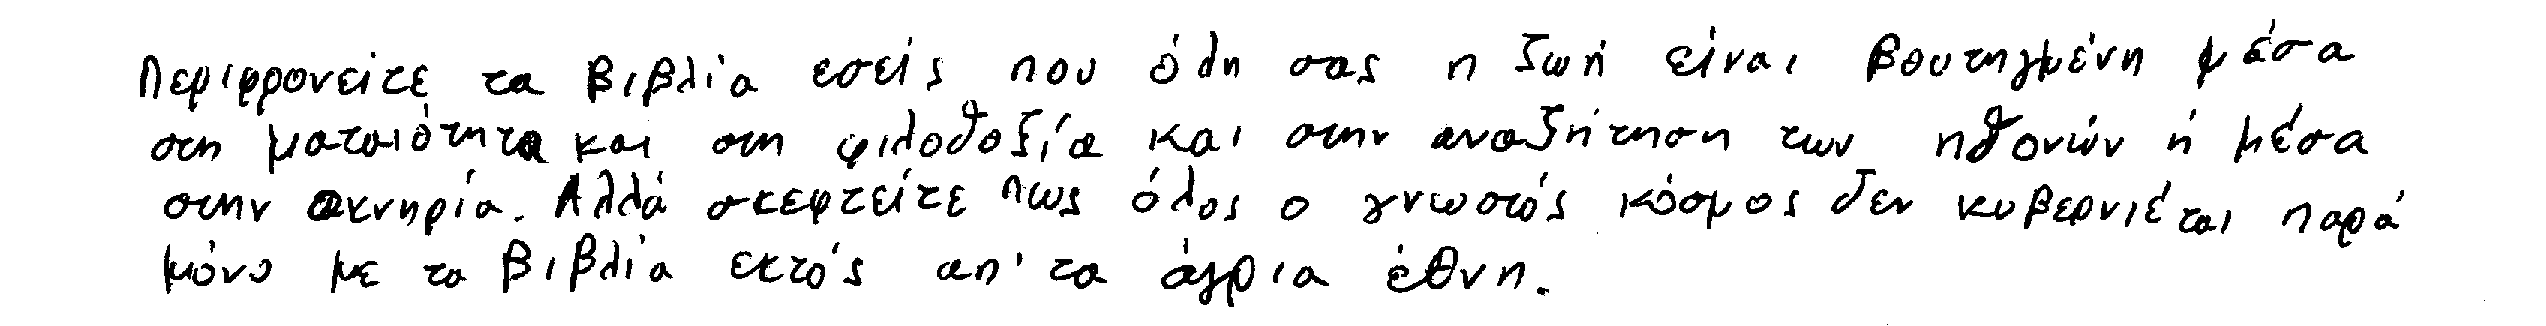 Περιφρονείτε τα βιβλία εσείς που όλη σας η ζωή είναι βουτηγμένη μέσα
στη ματαιότητα και στη φιλοδοξία και στην αναζήτηση των ηδονών ή μέσα
στην οκνηρία. Αλλά σκεφτείτε πως όλος ο γνωστός κόσμος δεν κυβερνιέται παρά
μόνο με τα βιβλία εκτός απ' τα άγρια έθνη.